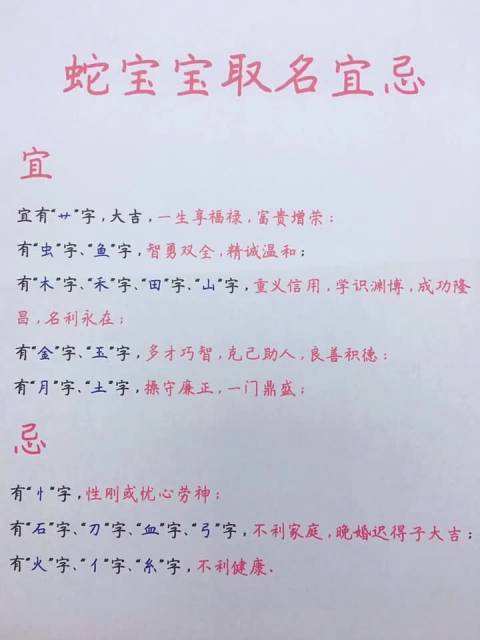 蛇宝宝取名宜忌
宜
宜有“艹”字,大吉,一生享福禄,富贵增荣;
有“虫”字、“鱼”字,智勇双全,精诚温和;
有“木”字、“禾”字、“田”字、“山”字,重义信用,学识渊博,成功隆
昌,名利永在;
有“金”字、“玉”字,多才巧智,克己助人,良善积德;
有“月”字、“土”字,操守廉正,一门鼎盛;
忌
有“忄”字,性刚或忧心劳神;
有“石”字、“刀”字、“血”字、“弓”字,不利家庭,晚婚迟得子大吉;
有“火”字、“亻”字、“糸”字,不利健康.